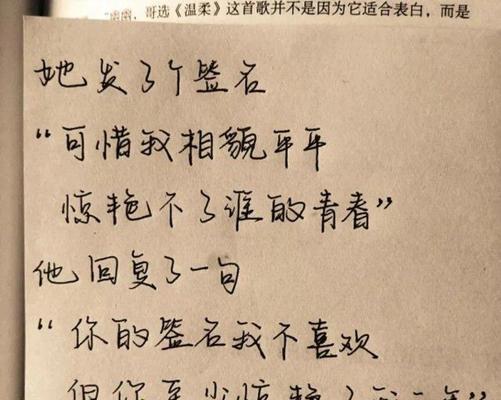 幽幽，哥选《温柔》这首歌并不是因为它适合表白，而是
她发了个签名
“可惜我相貌平平
惊艳不了谁的青春”
他回复了一句
“你的签名我不喜欢
但你至少惊艳了我一年”